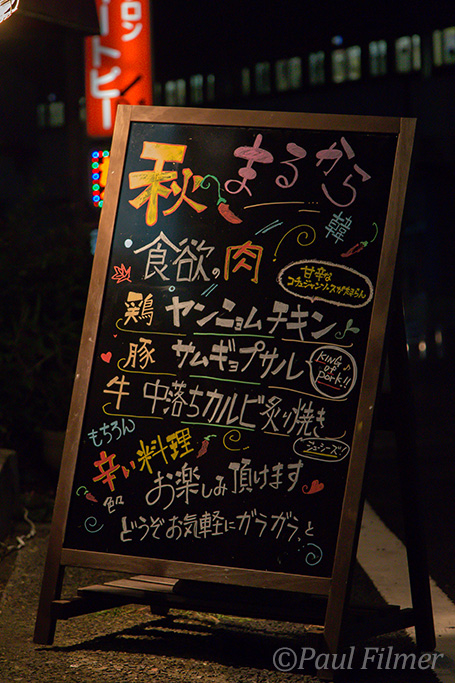 ロン
ートピー
秋 まるから
韓
食欲の肉
甘辛な
コチュジャンソースがたまらん
鶏 ヤンニョムチキン
豚 サムギョプサル
KING of Pork!!
牛 中落ちカルビ炙り焼き
ジューシーズ!
もちろん
辛い料理
も お楽しみ頂けます
どうぞお気軽にガラガラっと
©Paul Filmer